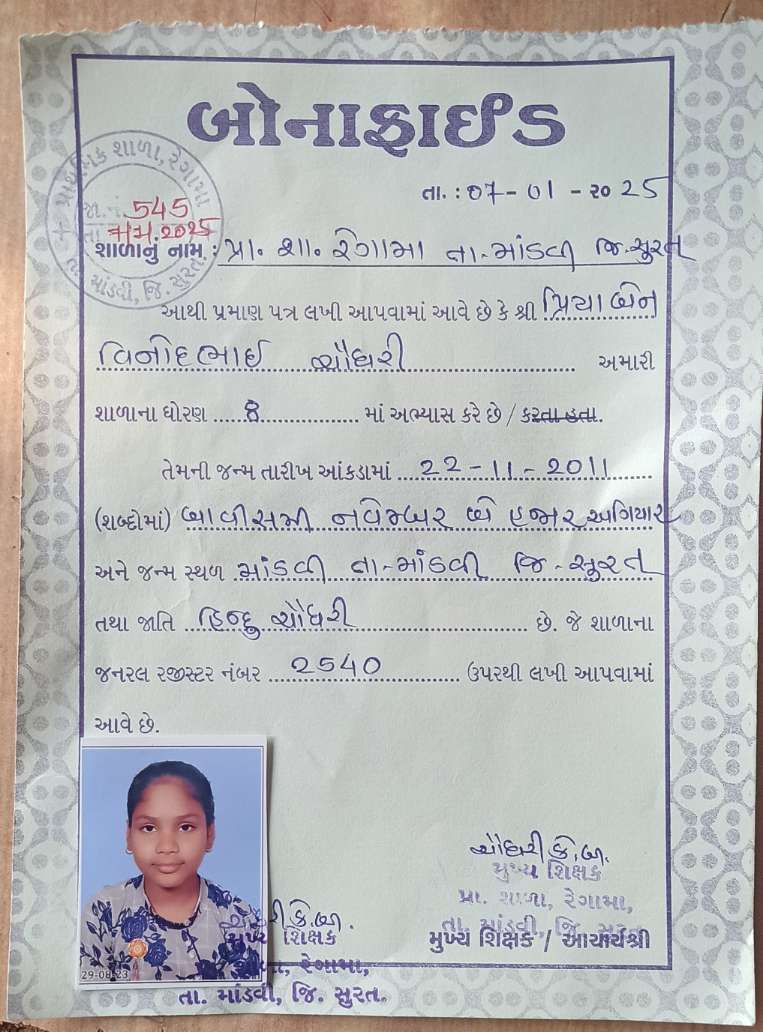 બોનાફાઈડ
પ્રાથમિક શાળા, રેગામા
તા. માંડવી, જિ. સુરત
જા. નં. 545
તા. 2025
તા. : 07-01-2025
શાળાનું નામ : પ્રા. શા. રેગામા તા-માંડવી જિ-સુરત
આથી પ્રમાણ પત્ર લખી આપવામાં આવે છે કે શ્રી પ્રિયાબેન
વિનોદભાઈ ચૌધરી અમારી
શાળાના ધોરણ 8 માં અભ્યાસ કરે છે / કરતા હતા.
તેમની જન્મ તારીખ આંકડામાં 22-11-2011
(શબ્દોમાં) બાવીસમી નવેમ્બર બે હજાર અગિયાર
અને જન્મ સ્થળ માંડવી તા-માંડવી જિ-સુરત
તથા જાતિ હિન્દુ ચૌધરી છે. જે શાળાના
જનરલ રજીસ્ટર નંબર 2540 ઉપરથી લખી આપવામાં
આવે છે.
ચૌધરી કે.બી.
મુખ્ય શિક્ષક
પ્રા. શાળા, રેગામા,
તા. માંડવી, જિ. સુરત
મુખ્ય શિક્ષક / આચાર્યશ્રી
કે.બી.
મુખ્ય શિક્ષક
રેગામા,
તા. માંડવી, જિ. સુરત.
29-08-23